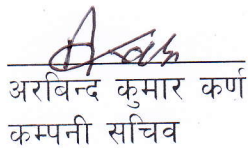 अरविन्द कुमार कर्ण
कम्पनी सचिव